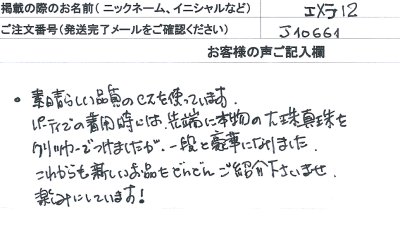 掲載の際のお名前(ニックネーム、イニシャルなど) エメラ12
ご注文番号(発送完了メールをご確認ください) J10661
お客様の声ご記入欄
・素晴らしい品質のセスを使っています。
パーティでの着用時には、先端に本物の大珠真珠を
クリッカーでつけましたが、一段と豪華になりました。
これからも新しいお品をどんどんご紹介下さいませ。
楽しみにしています!